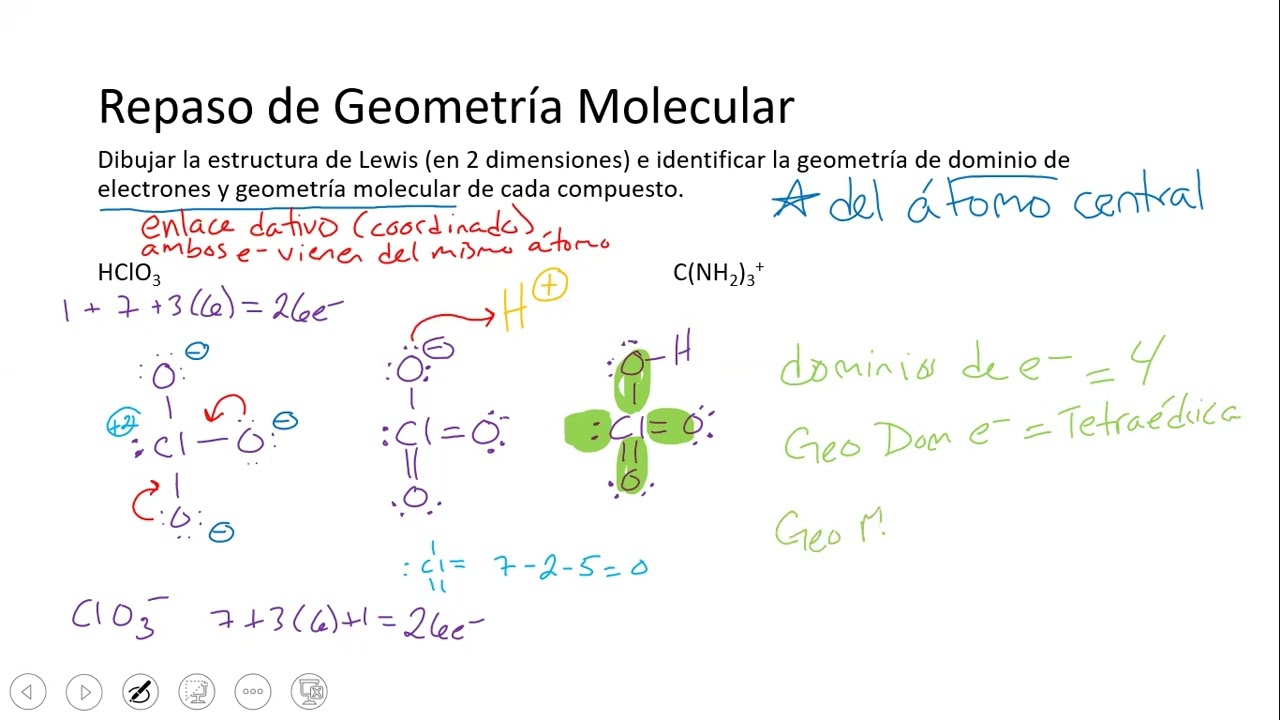 Repaso de Geometría Molecular
Dibujar la estructura de Lewis (en 2 dimensiones) e identificar la geometría de dominio de
electrones y geometría molecular de cada compuesto.
☆ del átomo central
enlace dativo (coordinado)
ambos e- vienen del mismo átomo
HClO₃
C(NH₂)₃⁺
1 + 7 + 3(6) = 26e⁻
H⁺
O⁻
O⁻
O-H
+2
:Cl-O⁻
:Cl=O
:Cl=O
O⁻
O
O
dominios de e⁻ = 4
Geo Dom e⁻ = Tetraédrica
Geo M
:Cl= 7-2-5=0
ClO₃⁻ 7+3(6)+1=26e⁻